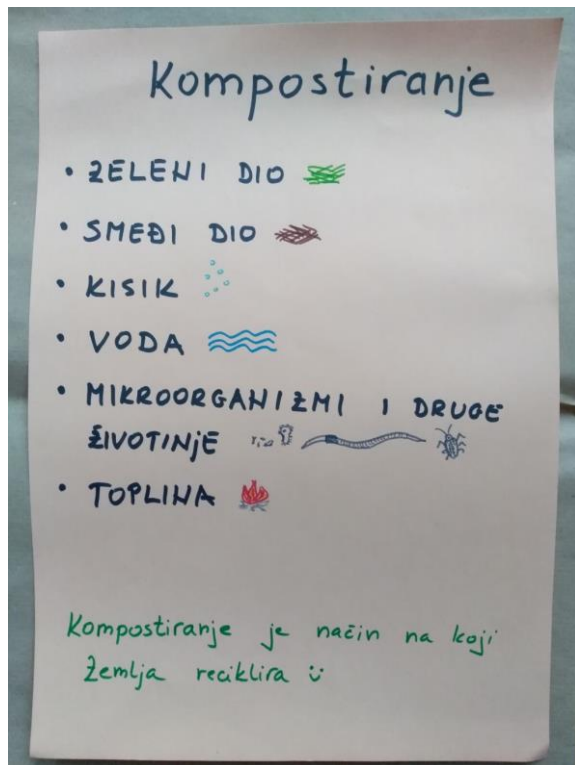 Kompostiranje
• ZELENI DIO
• SMEĐI DIO
• KISIK
• VODA
• MIKROORGANIZMI I DRUGE
ŽIVOTINjE
• TOPLINA
Kompostiranje je način na koji
Zemlja reciklira ü